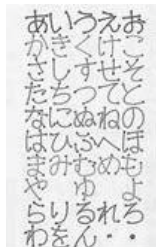 あいうえお
かきくけこ
さしすせそ
たちつてと
なにぬねの
はひふへほ
まみむめも
や　ゆ　よ
らりるれろ
わをん・・